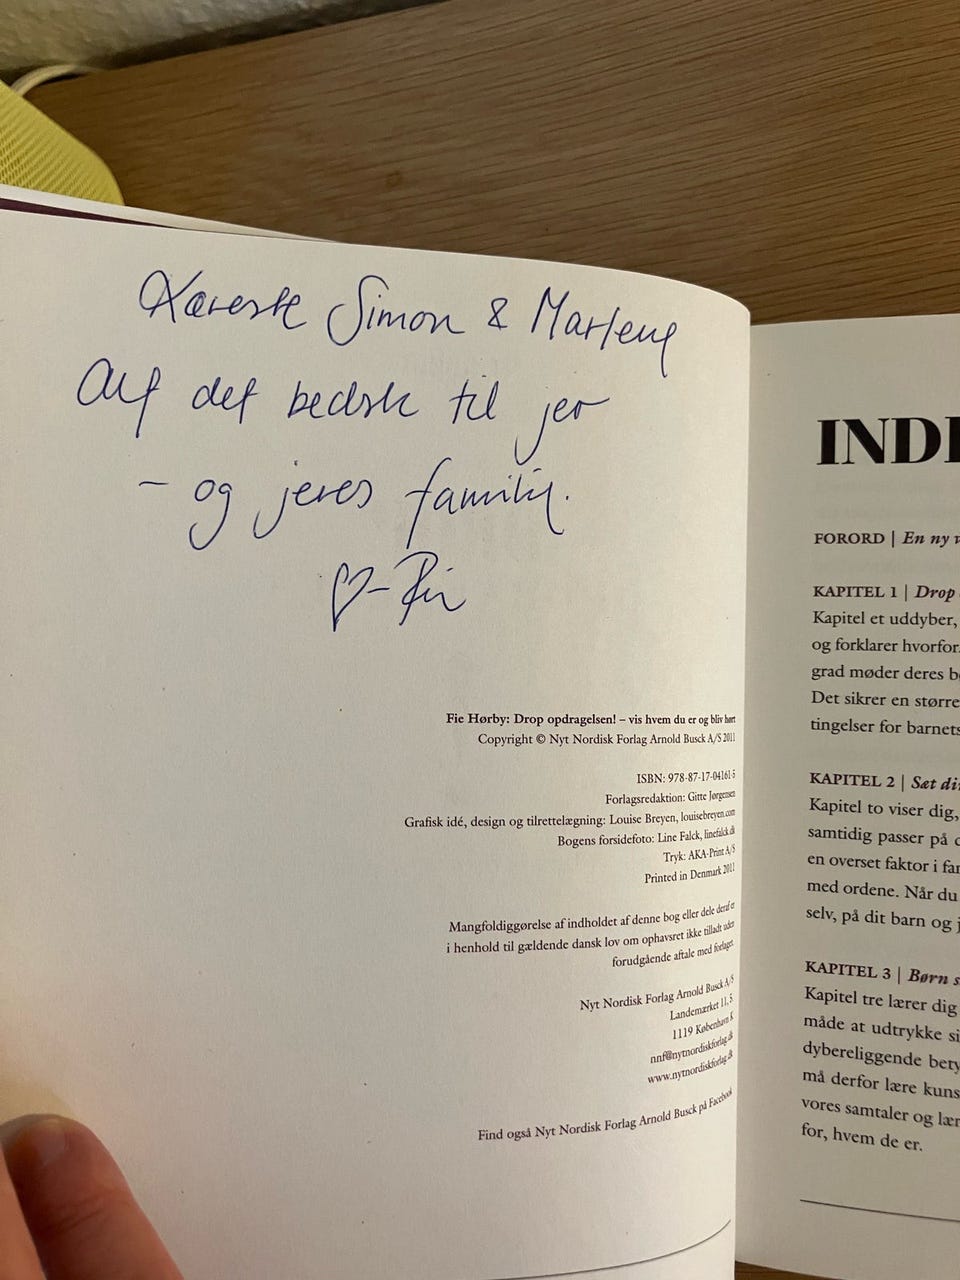 Kæreste Simon & Marlene
Alt det bedste til jer
– og jeres familie.
Fie Hørby: Drop opdragelsen! – vis hvem du er og bliv hørt
Copyright © Nyt Nordisk Forlag Arnold Busck A/S 2011
ISBN: 978-87-17-04161-5
Forlagsredaktion: Gitte Jørgensen
Grafisk idé, design og tilrettelægning: Louise Breyen, louisebreyen.com
Bogens forsidefoto: Line Falck, linefalck.dk
Tryk: AKA-Print A/S
Printed in Denmark 2011
Mangfoldiggørelse af indholdet af denne bog eller dele deraf er
i henhold til gældende dansk lov om ophavsret ikke tilladt uden
forudgående aftale med forlaget.
Nyt Nordisk Forlag Arnold Busck A/S
Landemærket 11, 5.
1119 København K
nnf@nytnordiskforlag.dk
www.nytnordiskforlag.dk
Find også Nyt Nordisk Forlag Arnold Busck på Facebook
FORORD | En ny
KAPITEL 1 | Drop
Kapitel et uddyber,
og forklarer hvorfor
grad møder deres
Det sikrer en større
tingelser for barnets
KAPITEL 2 | Sæt
Kapitel to viser dig,
samtidig passer på
en overset faktor i
med ordene. Når du
selv, på dit barn og
KAPITEL 3 | Børn
Kapitel tre lærer dig
måde at udtrykke
dybereliggende
må derfor lære
vores samtaler og
for, hvem de er.